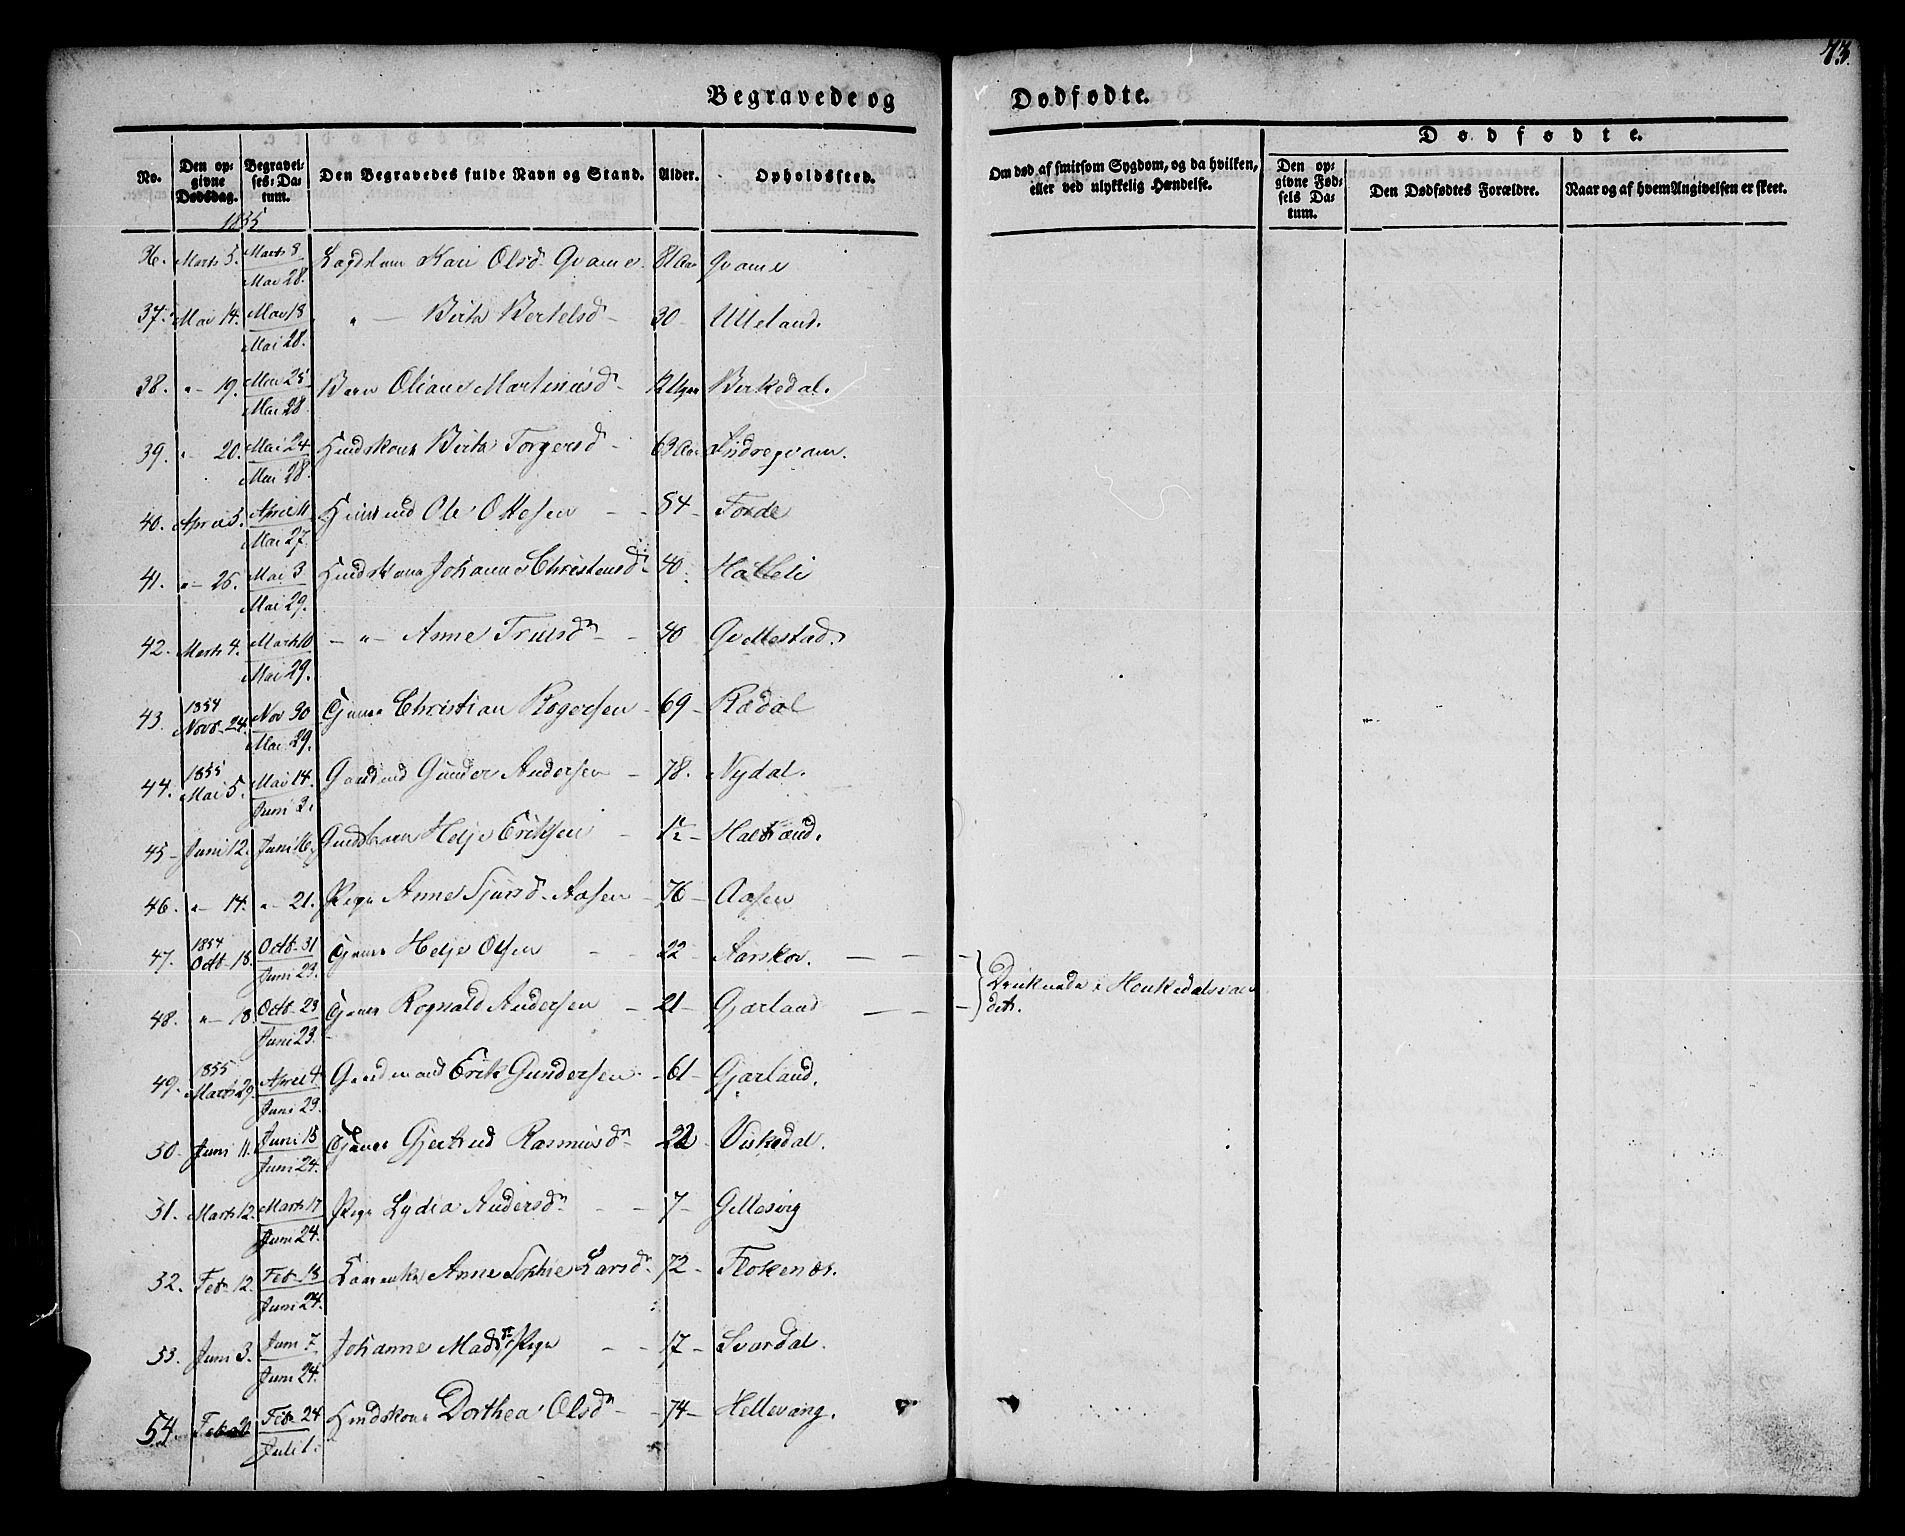 73.
Begravede og Dødfødte.
No. Den opgivne Dødsdag. Begravelses-Datum. Den Begravedes fulde Navn og Stand. Alder. Opholdssted. Om død af smitsom Sygdom, og da hvilken, eller ved ulykkelig Hændelse. Dødfødte. Den opgivne Fødsels Datum. Den Dødfødtes Forældre. Naar og af hvem Angivelsen er skeet.
1855
36. Marts 5. Marts 8 Mai 28. Kari Olsd. Qvame 81 Aar Qvame
37. Mai 14. Mai 18 Mai 28. " — Birta Bertelsd - 30 - Ulleland.
38. " - 19. Mai 25 Mai 28. Barn Oliane Martinusd - 12 Uger Birkedal.
39. " - 20. Mai 24 Mai 28. Huuskone Birta Torgersd - 63 Aar Indreqvam.
40. April 5. April 11 Mai 27. Ole Ottesen - 84 - Førde
41. " - 25. Mai 3 Mai 29. Johanne Christensd 40. Hatleli
42. Marts 4. Marts 10 Mai 29. — " — Anne Truisd - 40 Qvellestad.
43. 1854 Novb. 24. Nov 30 Mai 29. Christian Rogersen - 69 - Rødal
44. 1855 Mai 5. Mai 14. Juni 3. Gaardmd Gunder Andersen - 78. Nydal.
45 - Juni 12. Juni 16. Helje Eriksen - 1½ - Halstrand.
46. " - 14. " - 21. Pige Anne Sjursd. Aasen - 76 - Aasen
47. 1854 Octb - 18. Octb - 31 Juni 23. Helje Olsen - - 22 - Aarskov. — — — Druknede i Houkedalsvandet.
48. " - 18. Octb - 23 Juni 23. Rognald Andersen - 21 - Gjærland — — —
49. 1855 Marts 29. April 4 Juni 23. Gaardmand Erik Gundersen - 61 - Gjærland.
50. Juni 11. Juni 15 Juni 24. Gjertrud Rasmusdn 22 - Viskedal.
51. Marts 12. Marts 17 Juni 24. Pige Lydia Andersdn - - 7 - Gellesvig
52. Feb - 12. Feb - 18 Juni 24. Anne Sophie Larsdn 72 - Flokenæs.
53. Juni 3. Juni 7 Juni 24. Johanne Madsdt. Pige - - 17 - Svardal.
54. Feb 20 Feb - 24 Juli 1. Huuskone Dorthea Olsdn - - 74 - Hellevang.